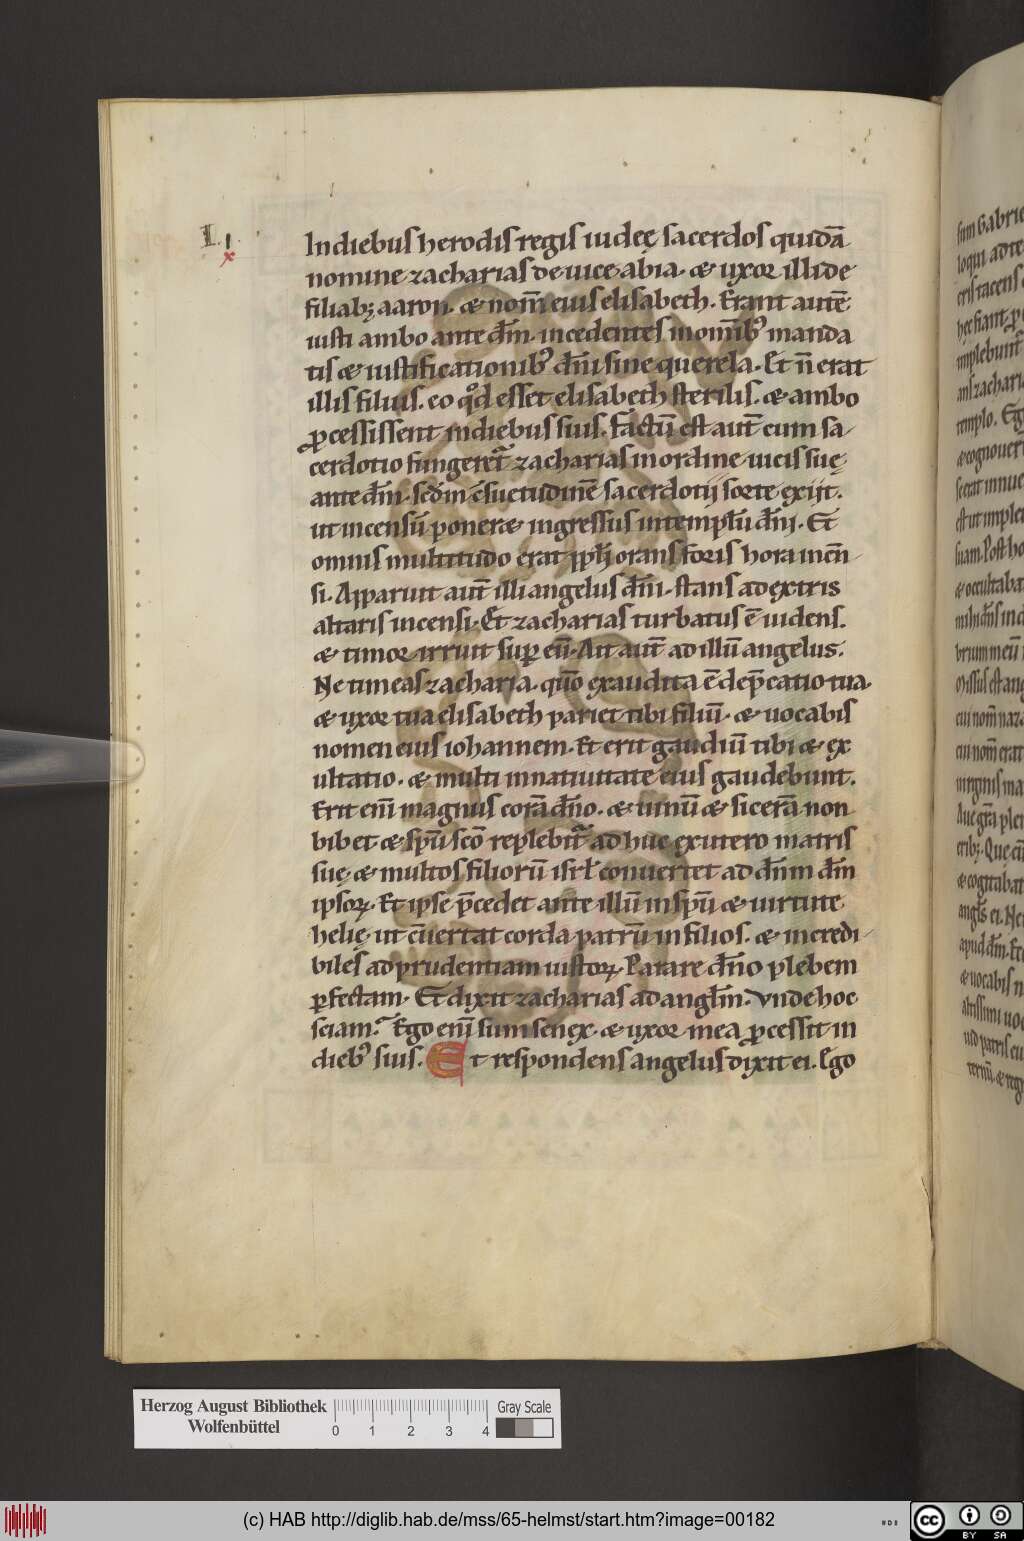 I.
x
Indiebus herodis regis iudeę sacerdos quidā
nomine zacharias de uice abia. & uxor illi de
filiabꝫ aaron. & nom̄ eius elisabeth. Erant autē
iusti ambo ante dm̄. incedentes inomībꝰ manda
tis & iustificationibꝰ dn̄i sine querela. Et n̄ erat
illis filius. eo qͦd esset elisabeth sterilis. & ambo
ꝓcessissent indiebus suis. Factū est aut̄ cum sa
cerdotio fungeret᷑ zacharias inordine uicis suę
ante dm̄. scd̄m c̄suetudinē sacerdotij sorte exijt.
ut incensū poner& ingressus intemplū dn̄i. Et
omnis multitudo erat pplī orans foris hora incēn
si. Apparuit aut̄ illi angelus dn̄i. stans adextris
altaris incensi. Et zacharias turbatus ē uidens.
& timor irruit suꝑ eū. Ait aut̄ ad illū angelus.
Ne timeas zacharia. qm̄o exaudita ē dep̄catio tua.
& uxor tua elisabeth pariet tibi filiū. & uocabis
nomen eius iohannem. Et erit gaudiū tibi & ex
ultatio. & multi innatiuitate eius gaudebunt.
Erit enī magnus corā dn̄o. & uinū & sicerā non
bibet & spū scō replebit᷑ ad huc exutero matris
suę. & multos filiorū isrł conuertet ad dnm̄ dm̄
ipsoꝝ. Et ipse p̄cedet ante illū inspū & uirtute
helię. ut c̄uertat corda patrū infilios. & incredi
biles adprudentiam iustoꝝ. Parare dn̄o plebem
ꝑfectam. Et dixit zacharias ad anglm̄. Vnde hoc
sciam? Ego enī sum senex. & uxor mea ꝓcessit in
diebꝰ suis. Et respondens angelus dixit ei. Ego
sum Gabrie
loqui ad te
eris tacens
hec fiant. ꝓ
implebunt᷑
ans zachari
templo.
est ut imple
suam. Post ho
& occultaba
brium meū
Missus est ang
cui nom̄ naza
cui nom̄ erat
uirginis ma
Aue gr̄a plen
& cogitabat
angl̄s ei. Ne
apud dm̄.
& uocabis
altissimi uoc
Herzog August Bibliothek
Wolfenbüttel
0 1 2 3 4
Gray Scale
(c) HAB http://diglib.hab.de/mss/65-helmst/start.htm?image=00182
cc BY SA